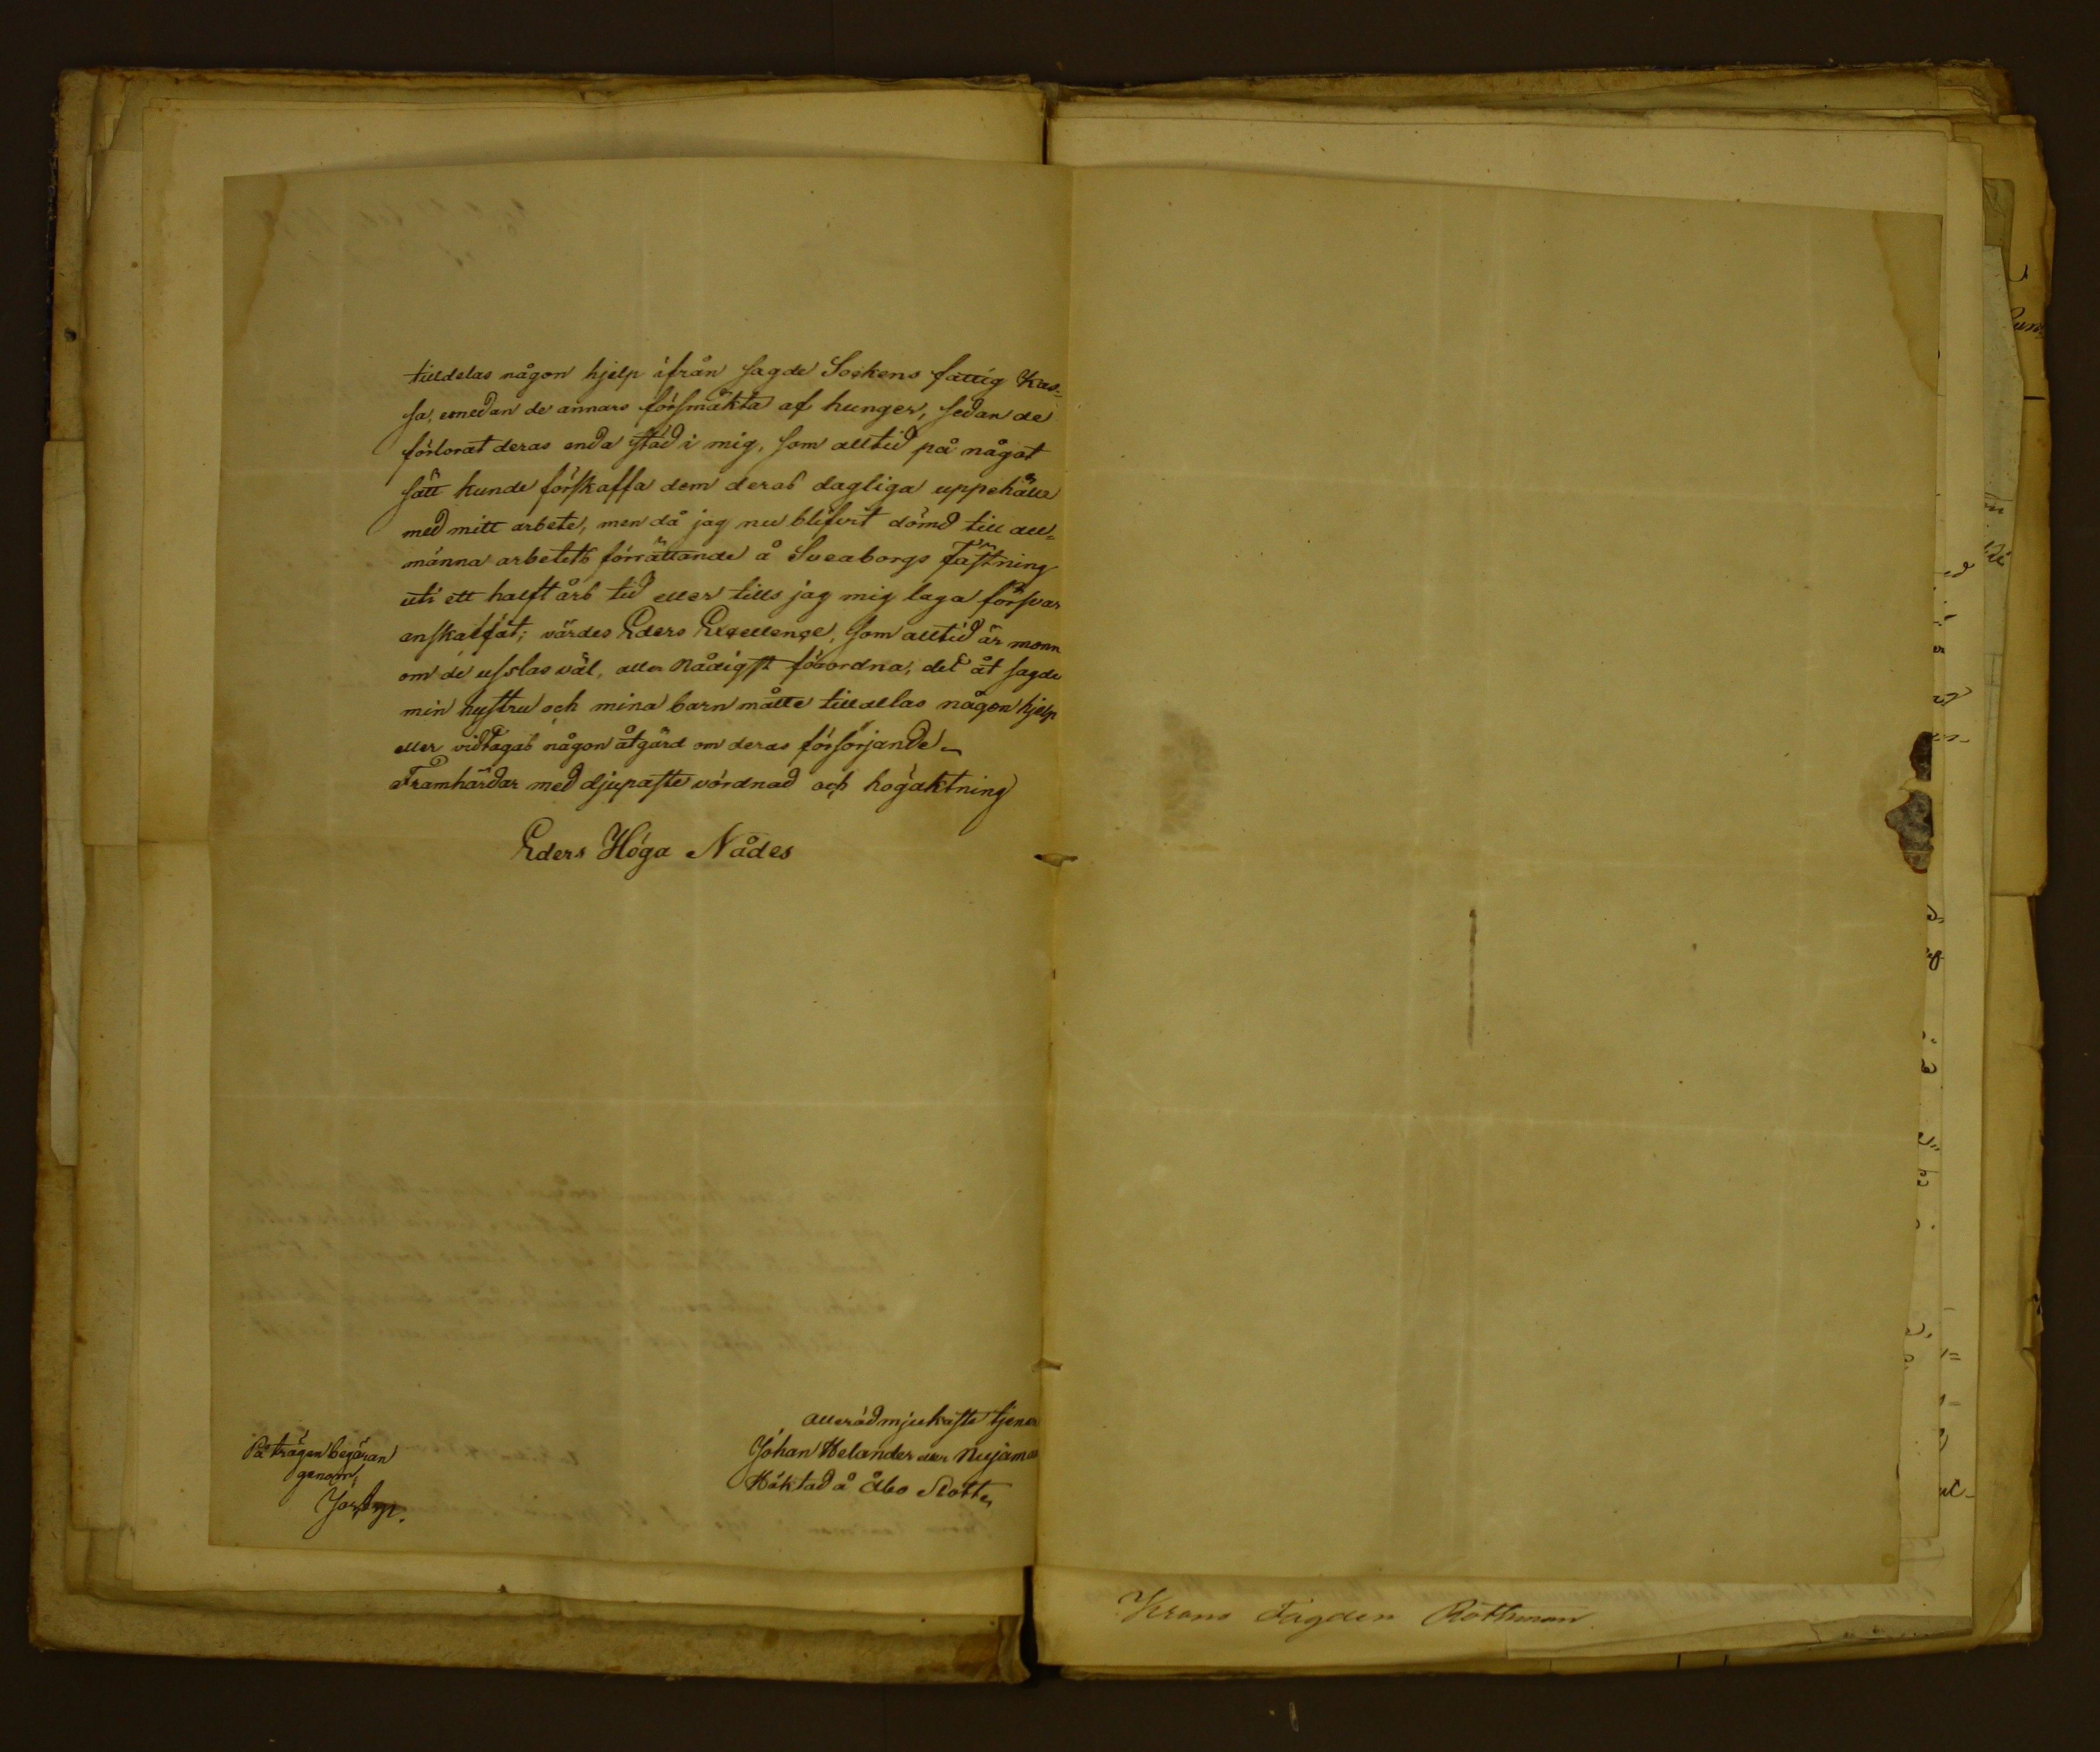 tilldelas någon hjelp ifrån sagde Sockens fattig Kas-
sa, emedan de annars försmäkta af hunger, sedan de
förlorat deras enda stöd i mig, som alltid på något
sätt kunde förskaffa dem deras dagliga uppehälle
med mitt arbete, men då jag nu blifvit dömd till all=
männa arbetets förrättande å Sveaborgs Fästning
uti ett halft års tid eller tills jag mig laga försvar
anskaffat; värdes Eders Exellense, som alltid är monn
om de usslas väl, aller Nådigst förordna, det åt sagde
min hustru och mina barn måtte tilldellas någon hjelp
eller vidtagas någon åtgärd om deras försörjande.
Framhärdar med djupaste vördnad och högaktning
Eders Höga Nådes
allerödmjukaste tjenare
Johan Helander eller
Häktad å Åbo Slott
På trägen begäran
genom
Krono Fogden Rothman